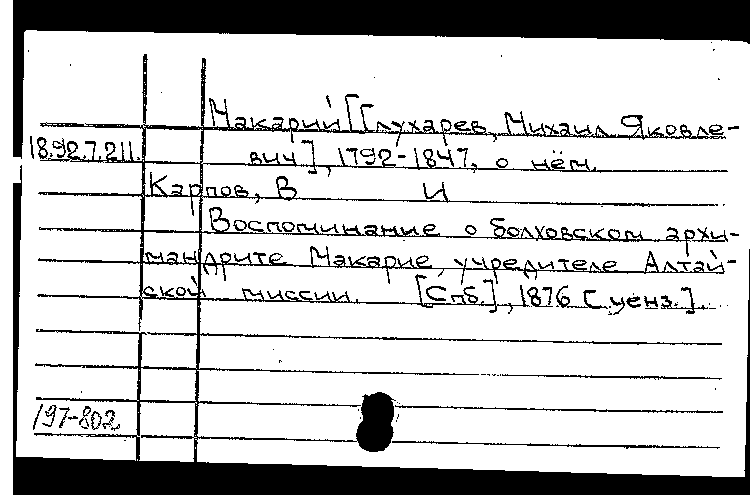 Макарий [Глухарев, Михаил Яковле-
18.92.7.211. вич], 1792-1847, о нём.
Карпов, В И
Воспоминание о болховском архи-
мандрите Макарие, учредителе Алтай-
ской миссии. [Спб.], 1876 [ценз.].
197-802